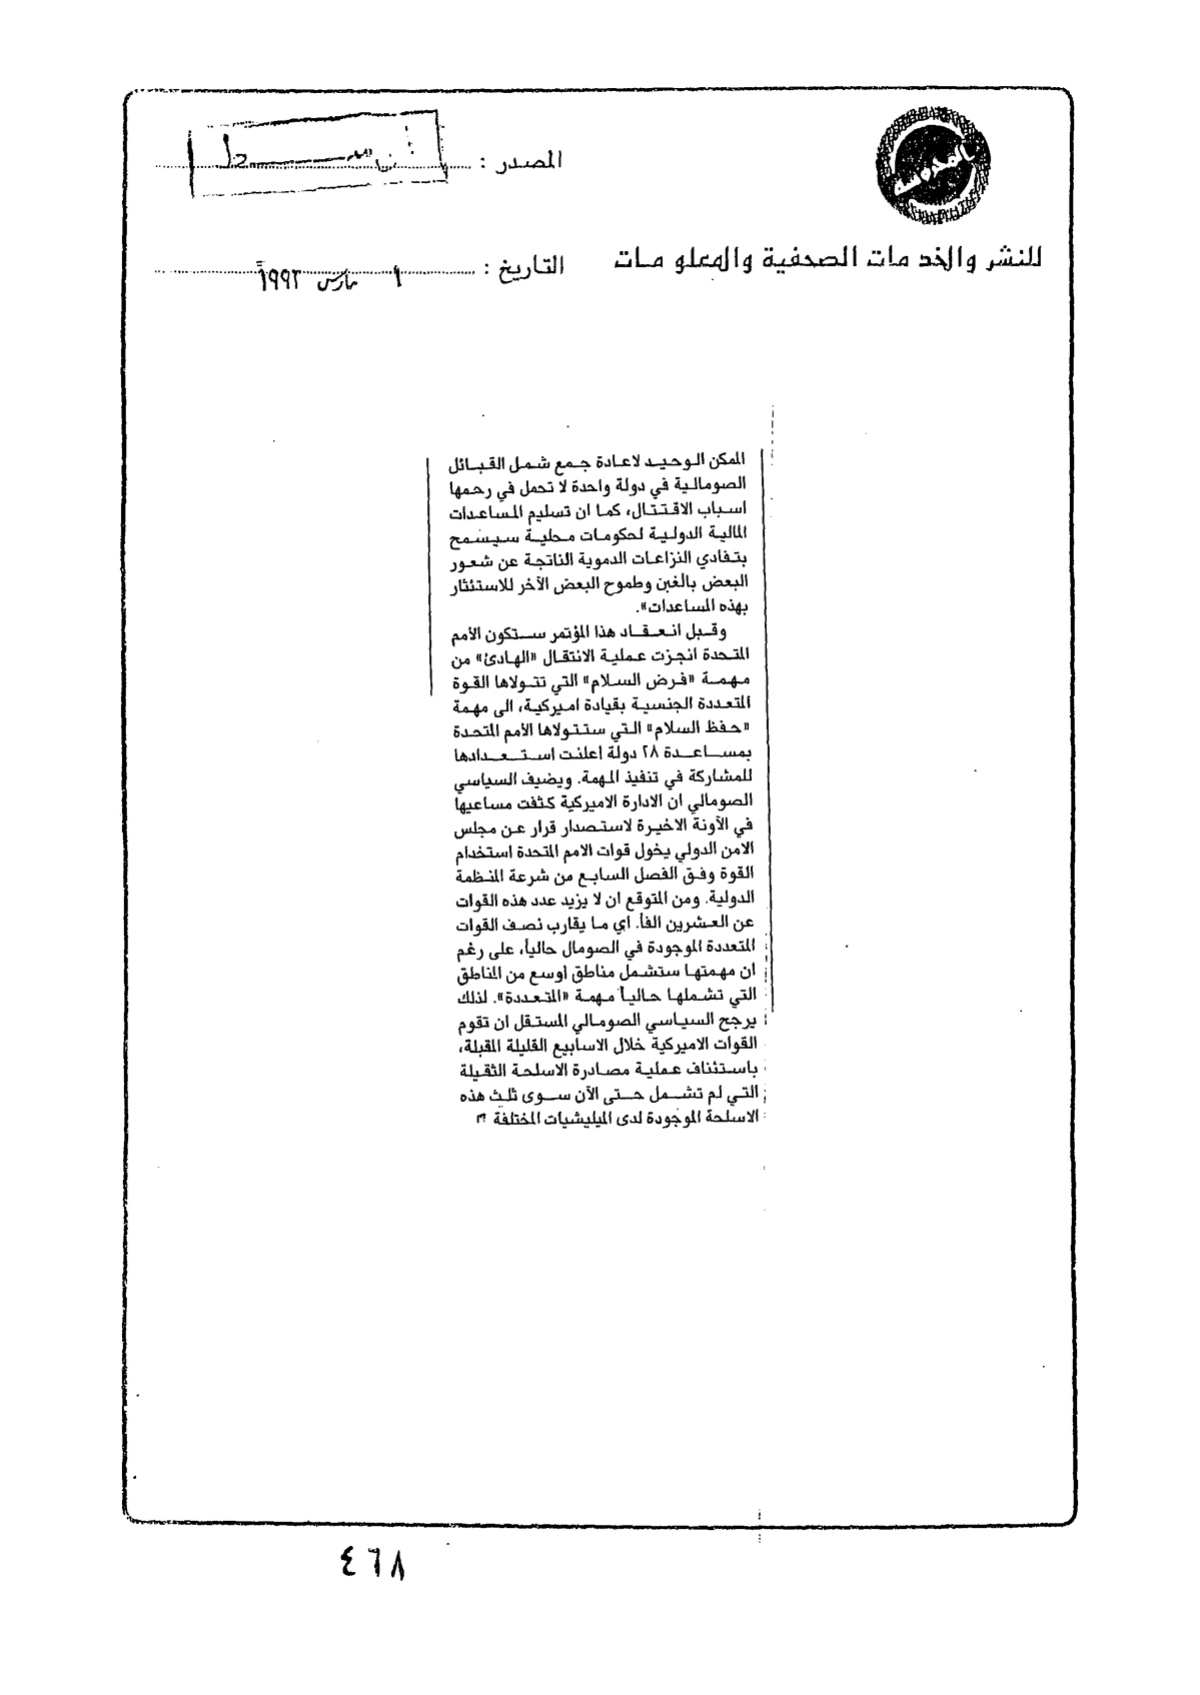 المصدر :
للنشر والخدمات الصحفية والمعلومات
التاريخ : ١ مارس ١٩٩٣
الممكن الوحيد لاعادة جمع شمل القبائل
الصومالية في دولة واحدة لا تحمل في رحمها
اسباب الاقتتال، كما ان تسليم المساعدات
المالية الدولية لحكومات محلية سيسمح
بتفادي النزاعات الدموية الناتجة عن شعور
البعض بالغبن وطموح البعض الآخر للاستئثار
بهذه المساعدات».
وقبل انعقاد هذا المؤتمر ستكون الأمم
المتحدة انجزت عملية الانتقال «الهادئ» من
مهمة «فرض السلام» التي تتولاها القوة
المتعددة الجنسية بقيادة اميركية، الى مهمة
«حفظ السلام» التي ستتولاها الأمم المتحدة
بمساعدة ٢٨ دولة اعلنت استعدادها
للمشاركة في تنفيذ المهمة. ويضيف السياسي
الصومالي ان الادارة الاميركية كثفت مساعيها
في الآونة الاخيرة لاستصدار قرار عن مجلس
الامن الدولي يخول قوات الامم المتحدة استخدام
القوة وفق الفصل السابع من شرعة المنظمة
الدولية. ومن المتوقع ان لا يزيد عدد هذه القوات
عن العشرين الفاً. اي ما يقارب نصف القوات
المتعددة الموجودة في الصومال حالياً، على رغم
ان مهمتها ستشمل مناطق اوسع من المناطق
التي تشملها حالياً مهمة «المتعددة». لذلك
يرجح السياسي الصومالي المستقل ان تقوم
القوات الاميركية خلال الاسابيع القليلة المقبلة،
باستئناف عملية مصادرة الاسلحة الثقيلة
التي لم تشمل حتى الآن سوى ثلث هذه
الاسلحة الموجودة لدى الميليشيات المختلفة
٨٦٤